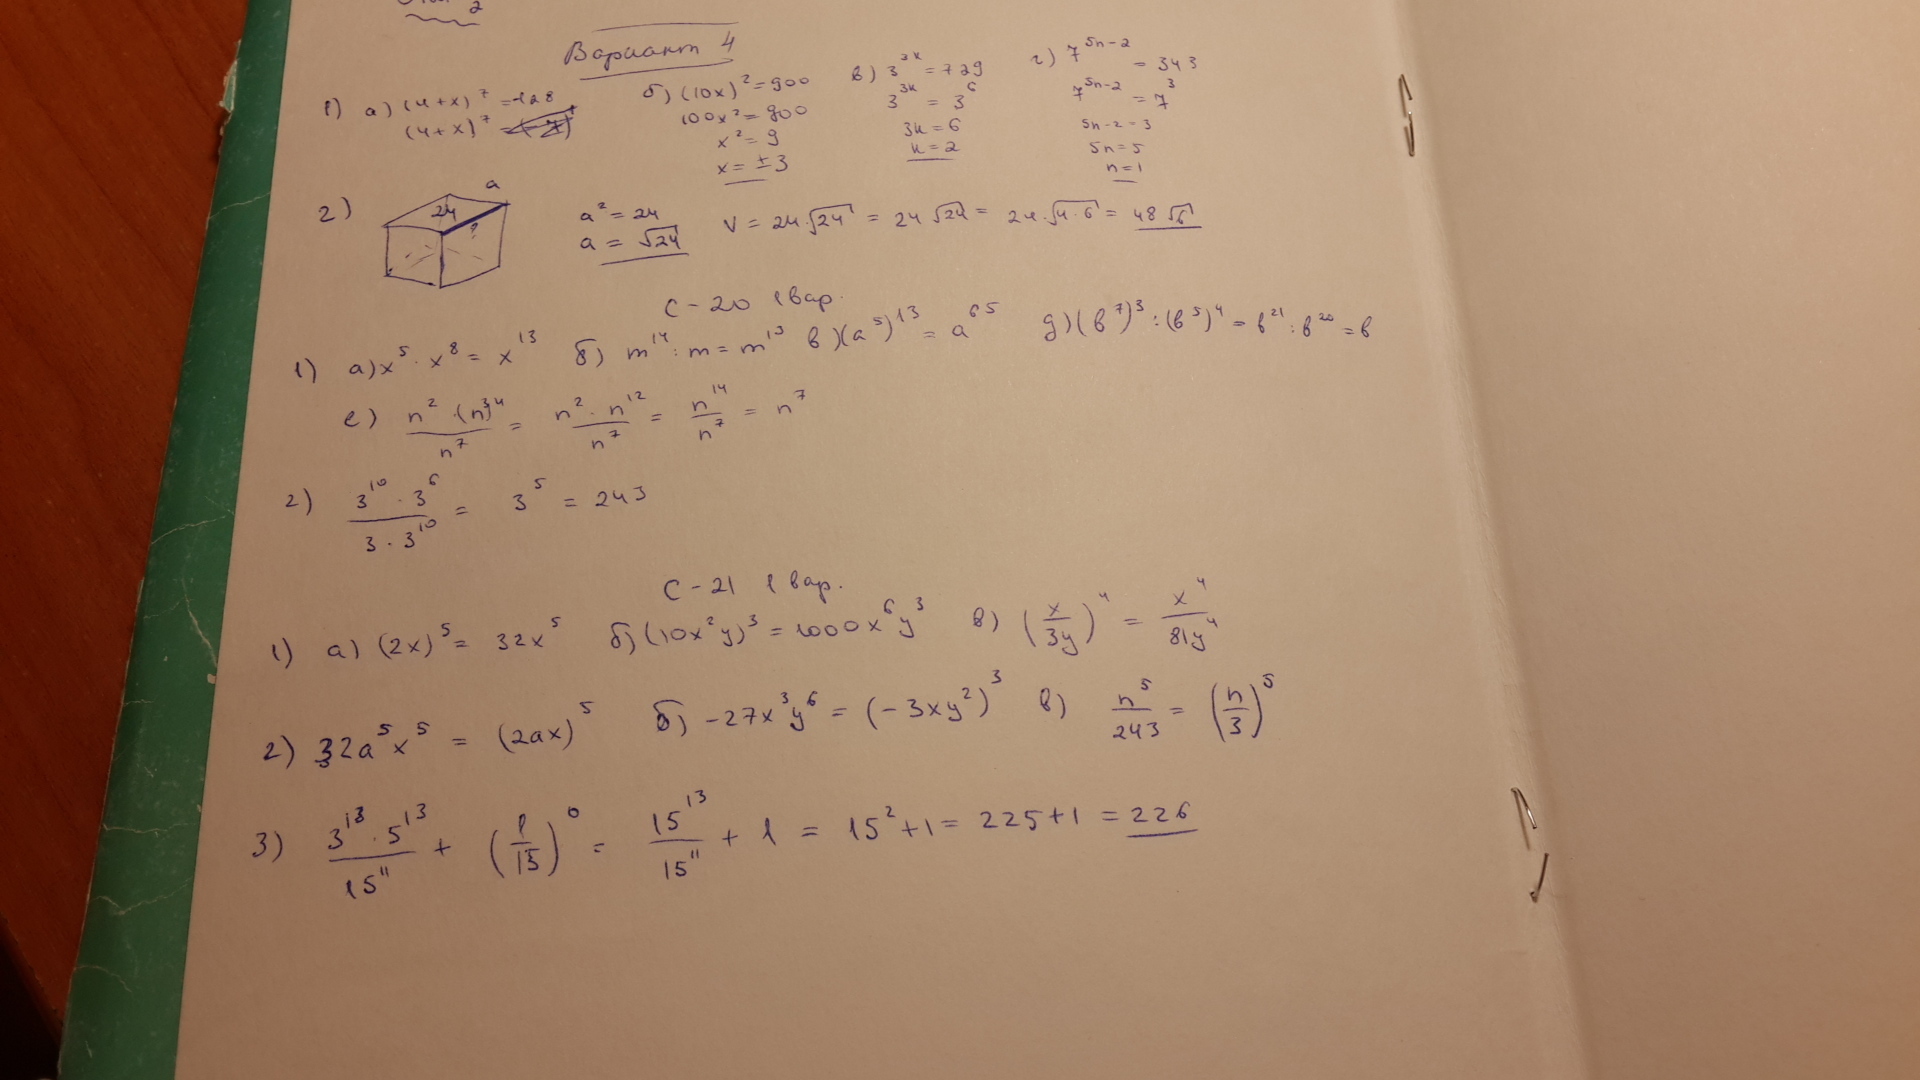 2
Вариант 4
1) а) (4+x)⁷ = -128 б) (10x)² = 900 в) 3³ᵏ = 729 г) 7⁵ⁿ⁻² = 343
(4+x)⁷ = 100x² = 900 3³ᵏ = 3⁶ 7⁵ⁿ⁻² = 7³
x² = 9 3k = 6 5n-2 = 3
x = ±3 k = 2 5n = 5
n = 1
2) a 24 ? a² = 24 V = 24·√24 = 24√24 = 24·√4·6 = 48√6
a = √24
С-20 1 вар.
1) а) x⁵ · x⁸ = x¹³ б) m¹⁴ : m = m¹³ в) (a⁵)¹³ = a⁶⁵ д) (b⁷)³ : (b⁵)⁴ = b²¹ : b²⁰ = b
е) n² · (n³)⁴ / n⁷ = n² · n¹² / n⁷ = n¹⁴ / n⁷ = n⁷
2) 3¹⁰ · 3⁶ / 3 · 3¹⁰ = 3⁵ = 243
С-21 1 вар.
1) а) (2x)⁵ = 32x⁵ б) (10x²y)³ = 1000x⁶y³ в) (x/3y)⁴ = x⁴/81y⁴
2) 32a⁵x⁵ = (2ax)⁵ б) -27x³y⁶ = (-3xy²)³ в) n⁵/243 = (n/3)⁵
3) 3¹³ · 5¹³ / 15¹¹ + (1/15)⁰ = 15¹³ / 15¹¹ + 1 = 15² + 1 = 225 + 1 = 226